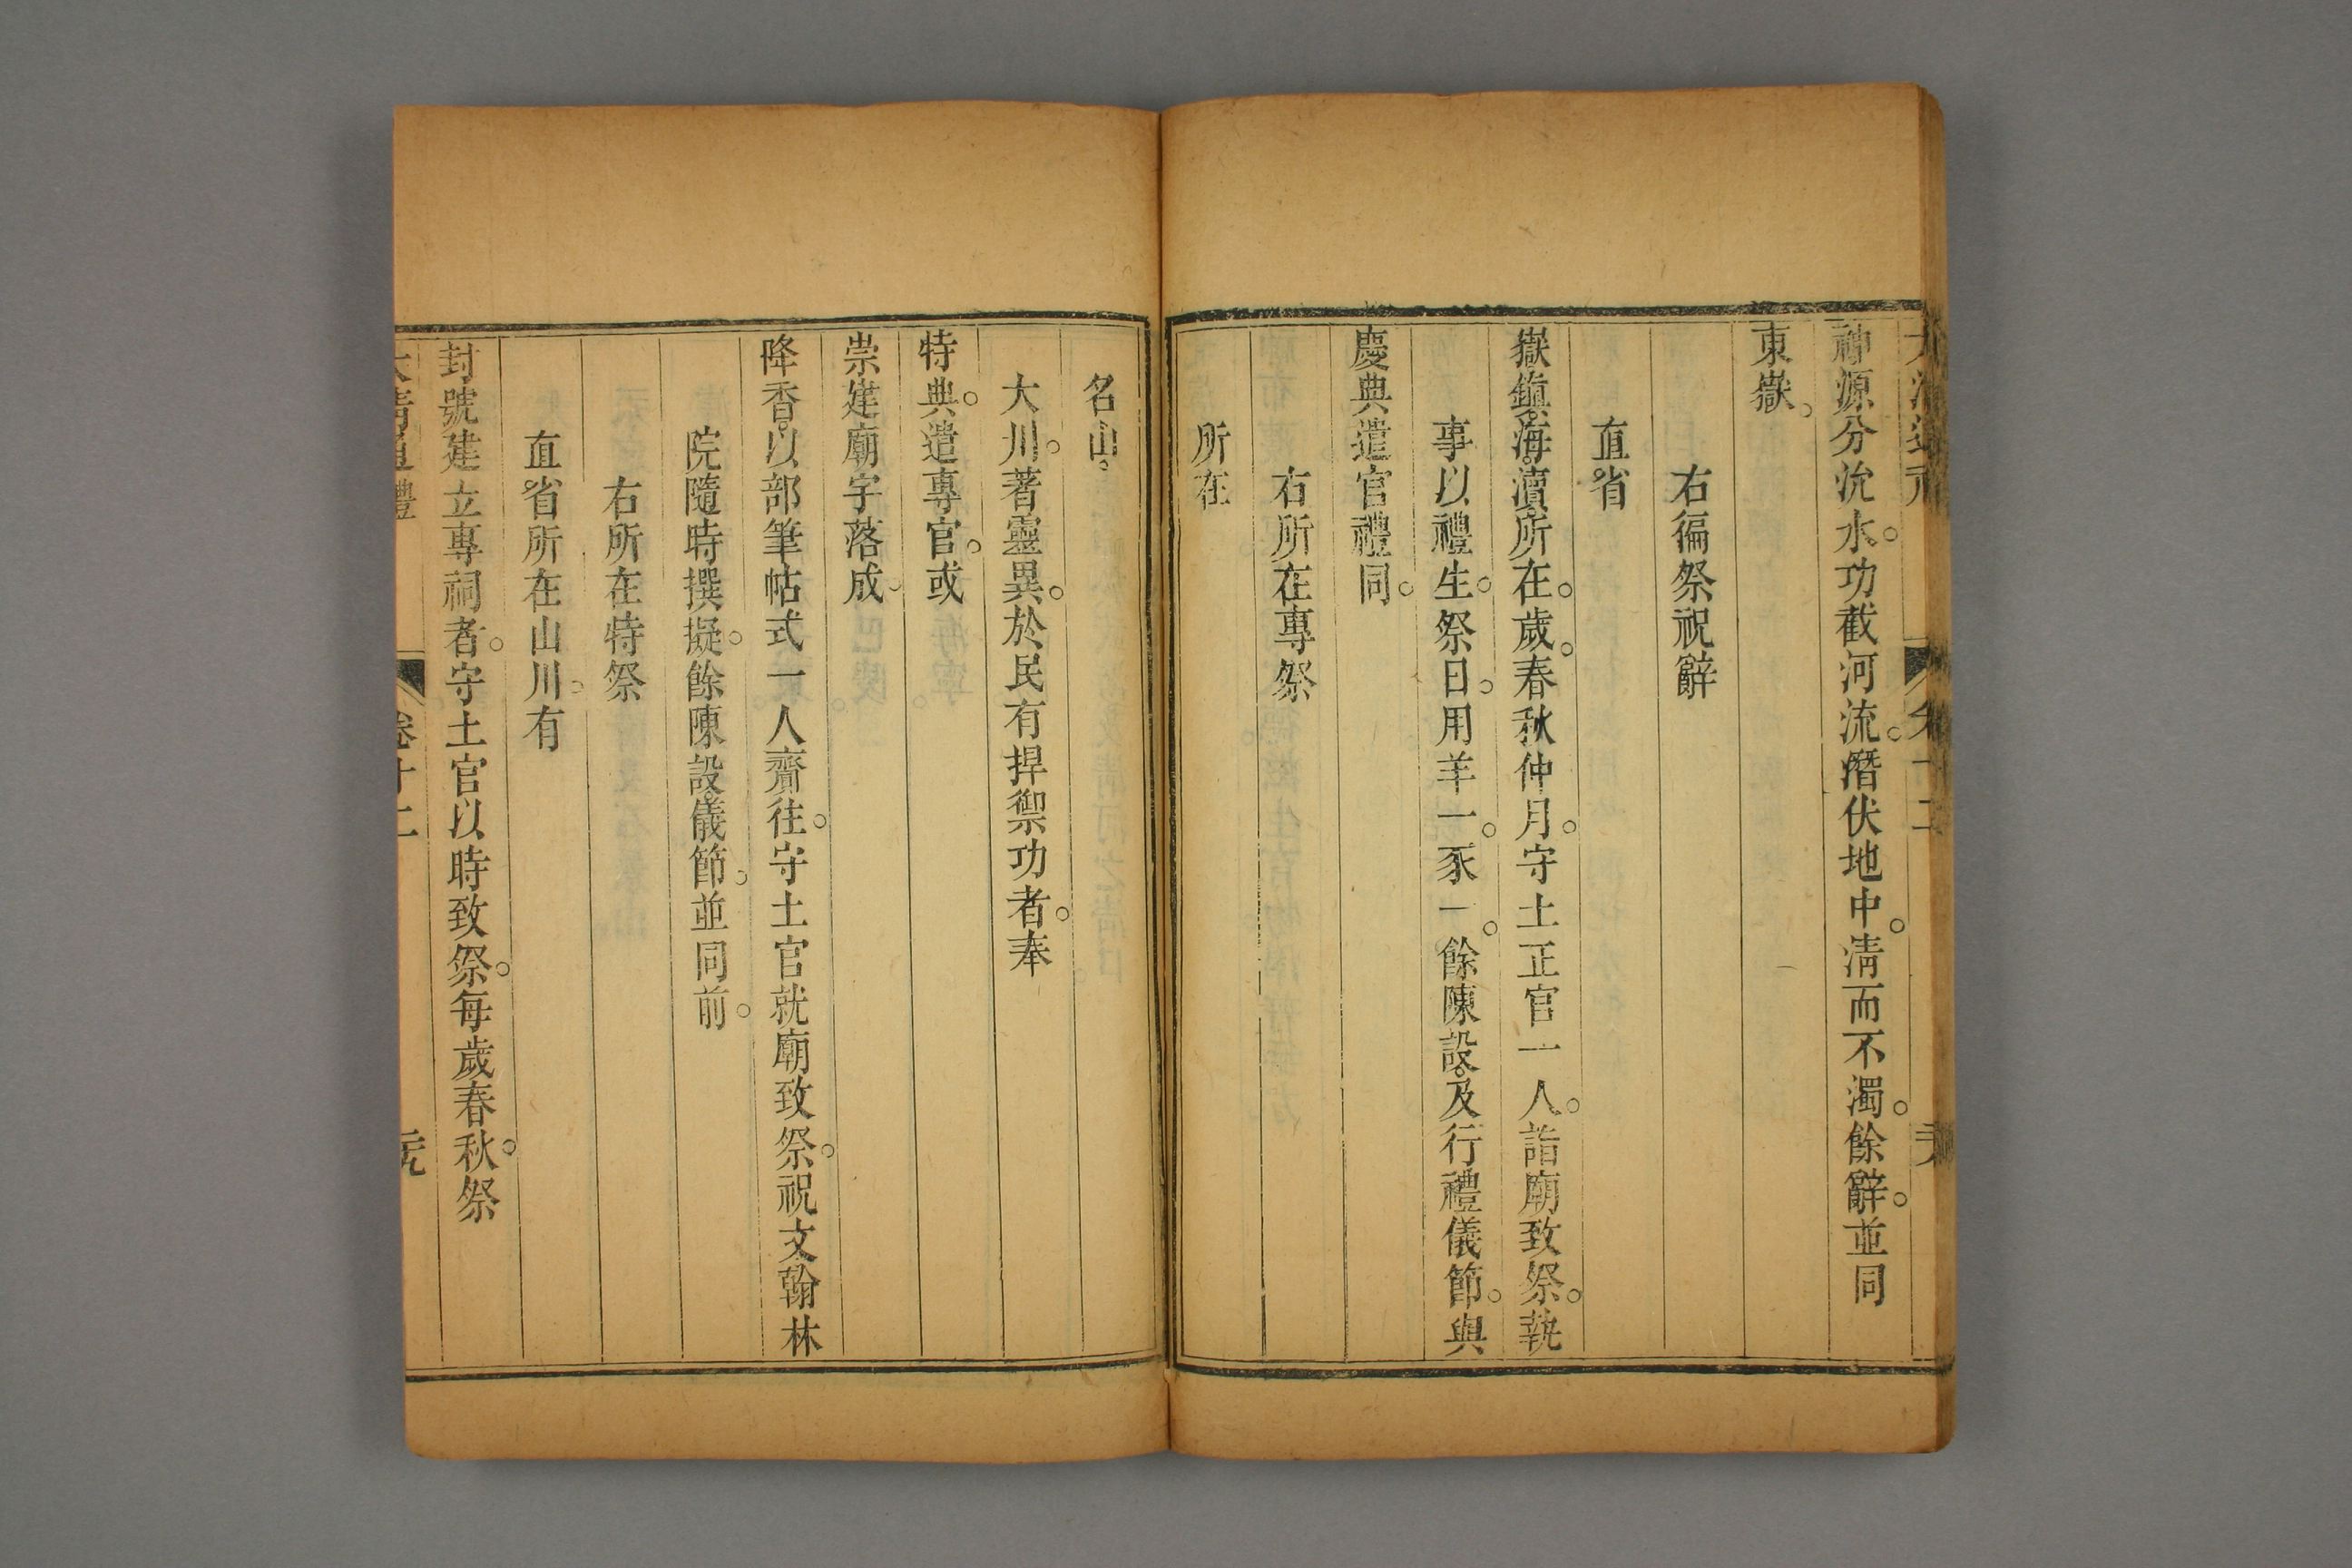 神源分沇水。功截河流。潛伏地中。淸而不濁。餘辭。並同
東嶽。
右徧祭祝辭
直省
嶽。鎭。海。瀆。所在。歲。春秋仲月。守土正官一人。詣廟致祭。執
事以禮生。祭日。用羊一。豕一。餘陳設。及行禮儀節。與
慶典遣官禮同。
右所在專祭
所在
名山。
大川。著靈異。於民有捍禦功者。奉
特典。遣專官。或
崇建廟宇落成。
降香。以部筆帖式一人齎往。守土官就廟致祭。祝文翰林
院隨時撰擬。餘陳設。儀節。並同前。
右所在特祭
直省所在山川。有
封號建立專祠者。守土官以時致祭。每歲春秋。祭
大清通禮 卷十二